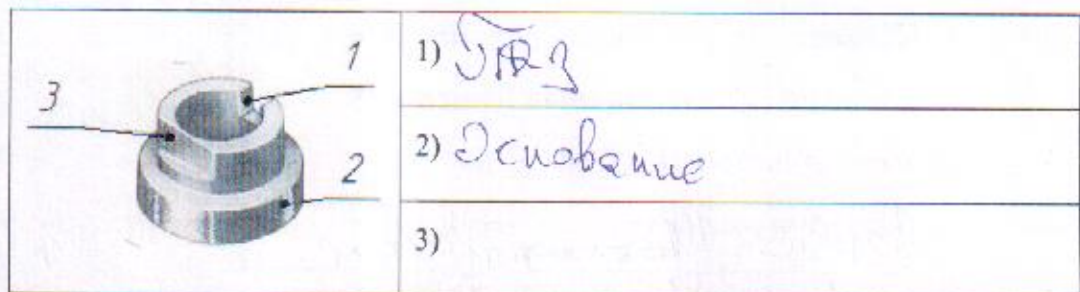 1
3
2
1) Паз
2) Основание
3)